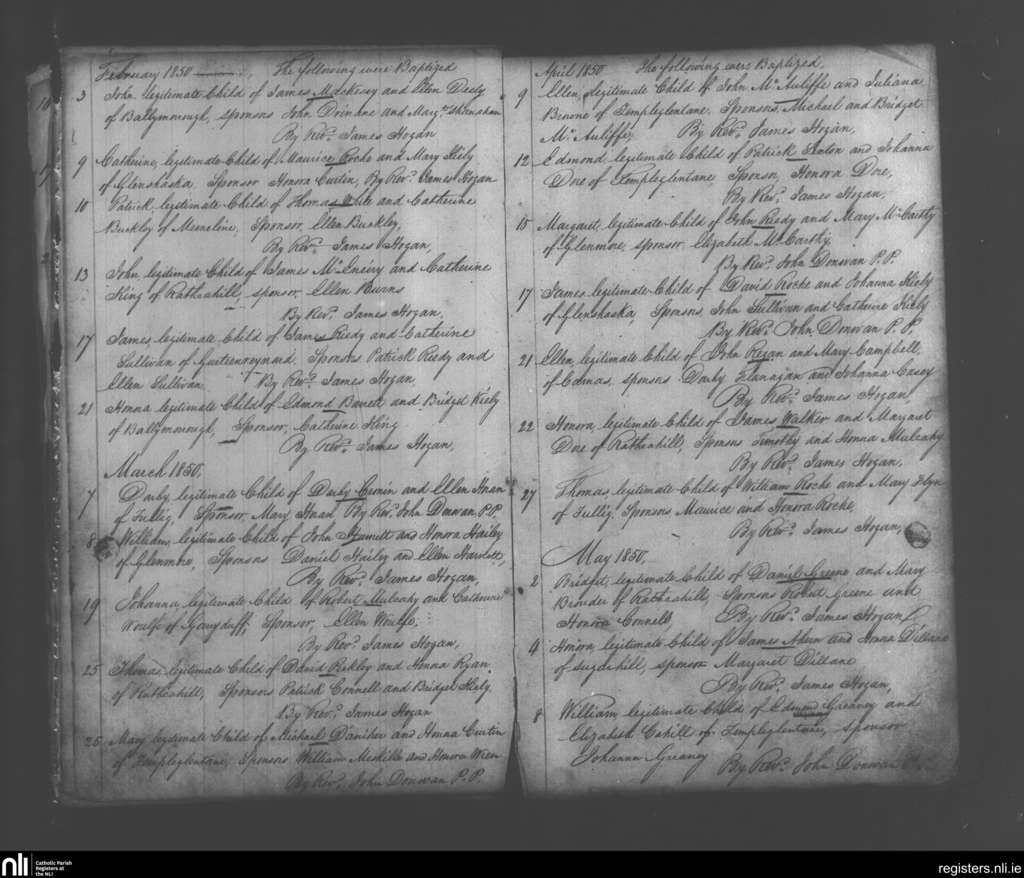 February 1850 The following were Baptized
3 John legitimate Child of James Mackesey and Ellen Deely
of Ballymorough, sponsors John Drinane and Marg.t
By Rev.d James Hogan
9 Catherine, legitimate Child of Maurice Roche and Mary Kiely
of Glenshaska, Sponsor Honora Curtin, By Rev.d James Hogan
10 Patrick, legitimate Child of Thomas and Catherine
Buckley of Meenoline, Sponsor, Ellen Buckley,
By Rev.d James Hogan,
13 John, legitimate Child of James Mc Eneiry and Catherine
King of Rathcahill, sponsor, Ellen Burns
By Rev.d James Hogan,
17 James, legitimate Child of James Reidy and Catherine
Sullivan of Sponsors Patrick Reidy and
Ellen Sullivan. By Rev.d James Hogan,
21 Honna legitimate Child of Edmond Barrett and Bridget Kiely
of Ballymorough, Sponsor, Catherine King
By Rev.d James Hogan,
March 1850,
7 Darby, legitimate Child of Darby Cronin and Ellen Hnan
of Tullig, Sponsor, Mary Hnan By Rev.d John Donovan P.P.
8 William, legitimate Child of John Hamilt and Honora Hailey
of Glenmore, Sponsors Daniel Hailey and Ellen
By Rev.d James Hogan,
19 Johanna, legitimate Child of Robert Mulcahy and Catherine
Woulfe of Gargduff, Sponsor, Ellen Woulfe,
By Rev.d James Hogan,
25 Thomas, legitimate Child of David Rickley and Honna Ryan
of Rathcahill, Sponsors Patrick Connell and Bridget Kiely
By Rev.d James Hogan
25 Mary legitimate Child of Michael Daniher and Honna Curtin
of Templeglentane, Sponsors William Meskill and Honora Wren
By Rev.d John Donovan P.P.
April 1850 The following were Baptized,
9 Ellen, legitimate Child of John Mc Auliffe and Juliana
Browne of Templeglentane, Sponsors, Michael and Bridget
Mc Auliffe, By Rev.d James Hogan,
12 Edmond, legitimate Child of Patrick and Johanna
Dore of Templeglentane Sponsor, Honora Dore,
By Rev.d James Hogan,
15 Margaret, legitimate Child of John Reidy and Mary Mc Carthy
of Glenmore, sponsor, Elizabeth Mc Carthy,
By Rev.d John Donovan P.P.
17 James, legitimate Child of David Roche and Johanna Kiely
of Glenshaska, Sponsors, John Sullivan and Catherine Kiely
By Rev.d John Donovan P.P.
21 Ellen, legitimate Child of John Regan and Mary Campbell,
of Camas, sponsors Darby Flanagan and Johanna Casey
By Rev.d James Hogan,
22 Honora, legitimate Child of James Walker and Margaret
Dore of Rathcahill, Sponsors Timothy and Honna Mulcahy
By Rev.d James Hogan,
27 Thomas, legitimate Child of William Roche and Mary Flyn
of Tullig, Sponsors Maurice and Honora Roche,
By Rev.d James Hogan,
May 1850,
2 Bridget, legitimate Child of Daniel Greene and Mary
Browder of Rathcahill, Sponsors Robert Greene and
Honora Connell, By Rev.d James Hogan
4 Honora, legitimate Child of James Ahern and Honna Dillane
of Sugarhill, sponsor Margaret Dillane
By Rev.d James Hogan,
8 William legitimate Child of Edmond Greaney and
Elizabeth Cahill of Templeglentane, sponsor
Johanna Greaney By Rev.d John Donovan P.P.
nli
Catholic Parish
Registers at
the NLI
registers.nli.ie